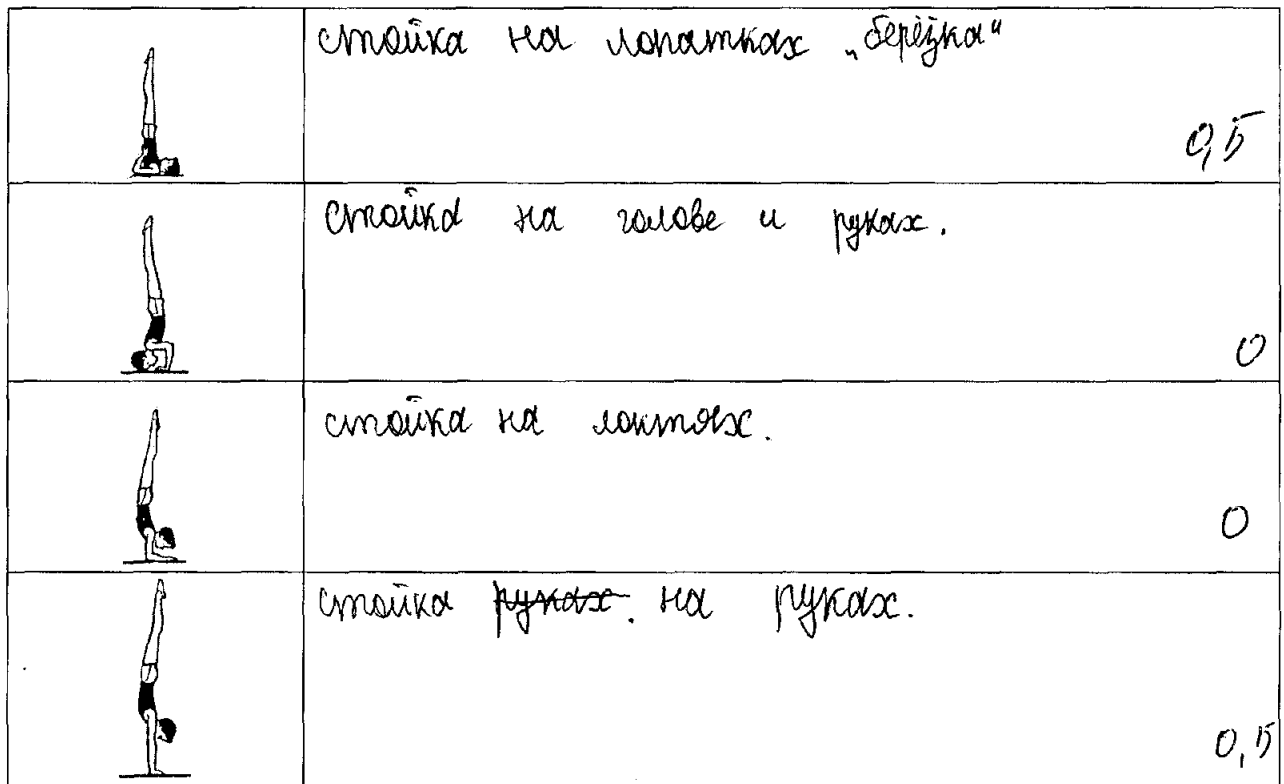 стойка на лопатках „берёзка“
0,5
стойка на голове и руках.
0
стойка на локтях.
0
стойка руках. на руках.
0,5